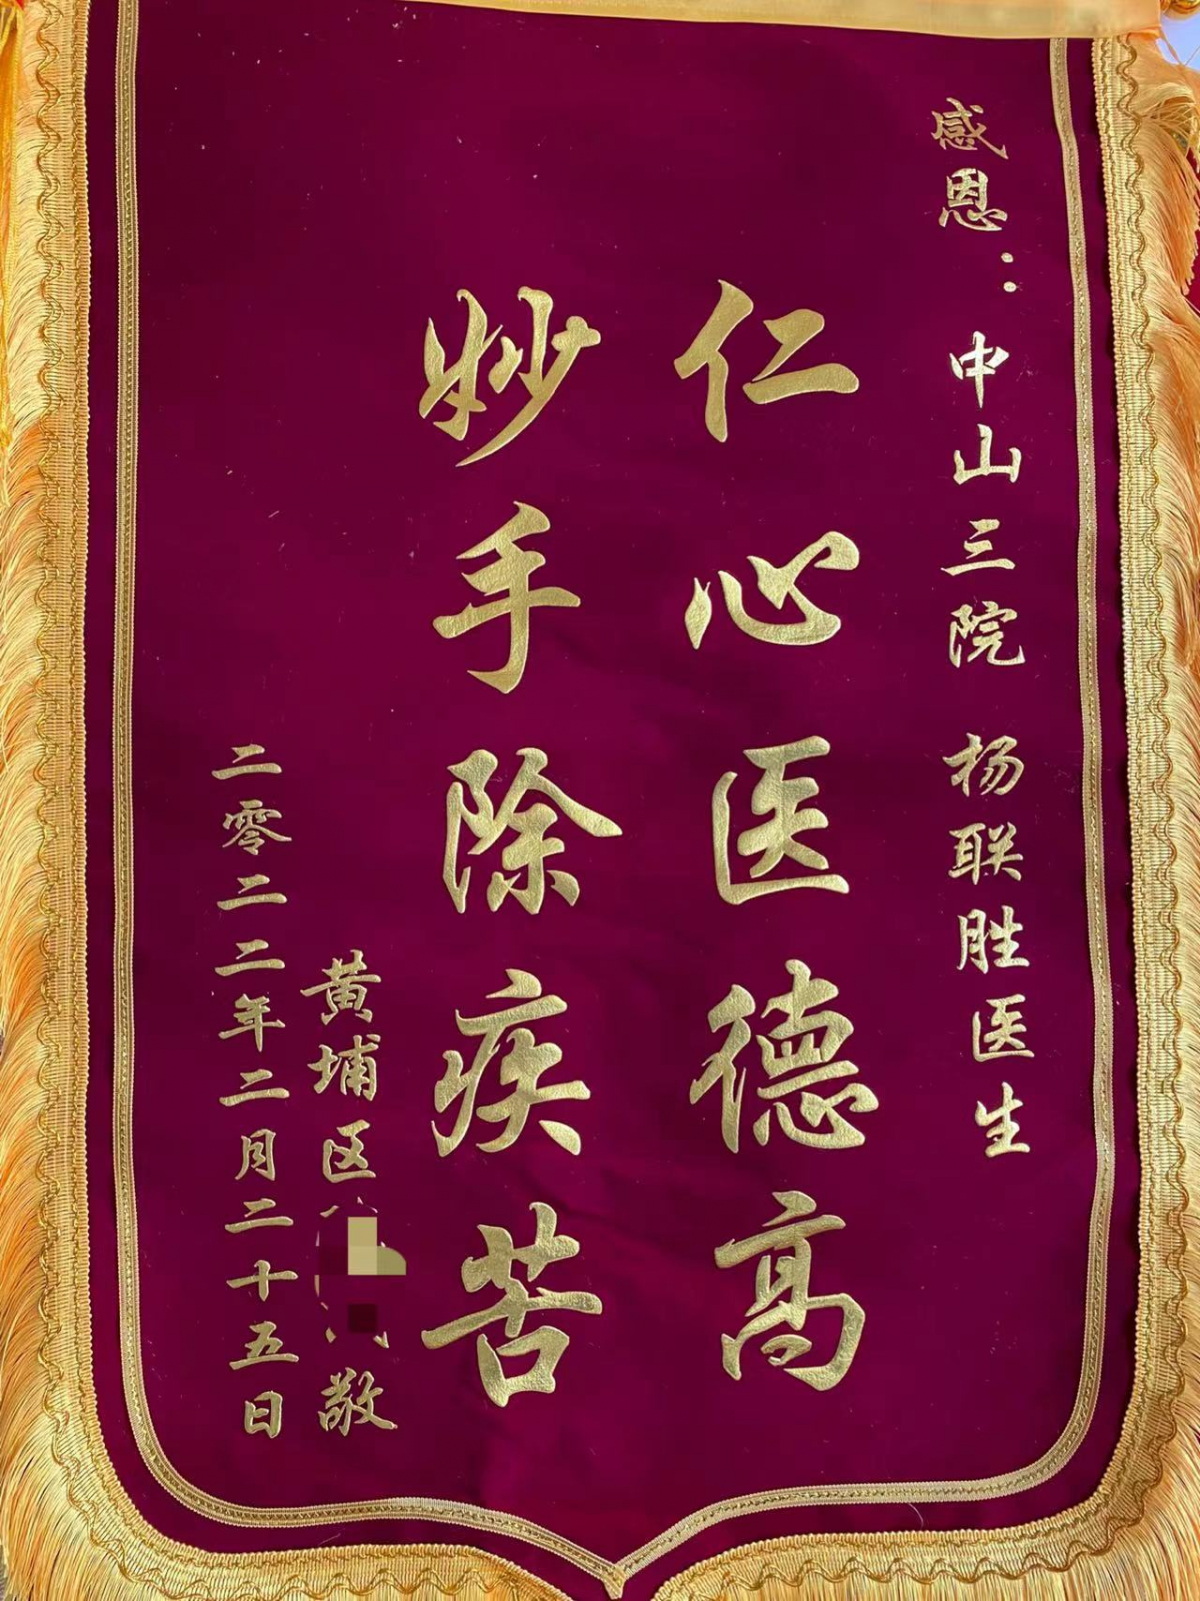 感恩：中山三院 杨联胜医生
仁心医德高
妙手除疾苦
黄埔区 敬
二零二二年二月二十五日